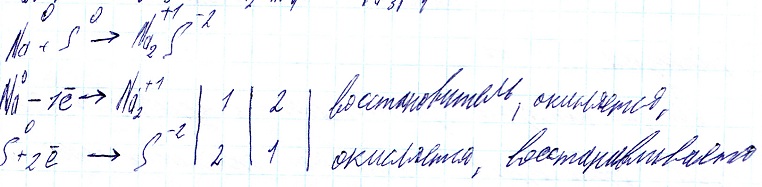 Na⁰ + S⁰ → Na₂⁺¹S⁻²
Na⁰ - 1ē → Na₂⁺¹ | 1 | 2 | восстановитель, окисляется,
S⁰ + 2ē → S⁻² | 2 | 1 | окисляется, восстанавливается